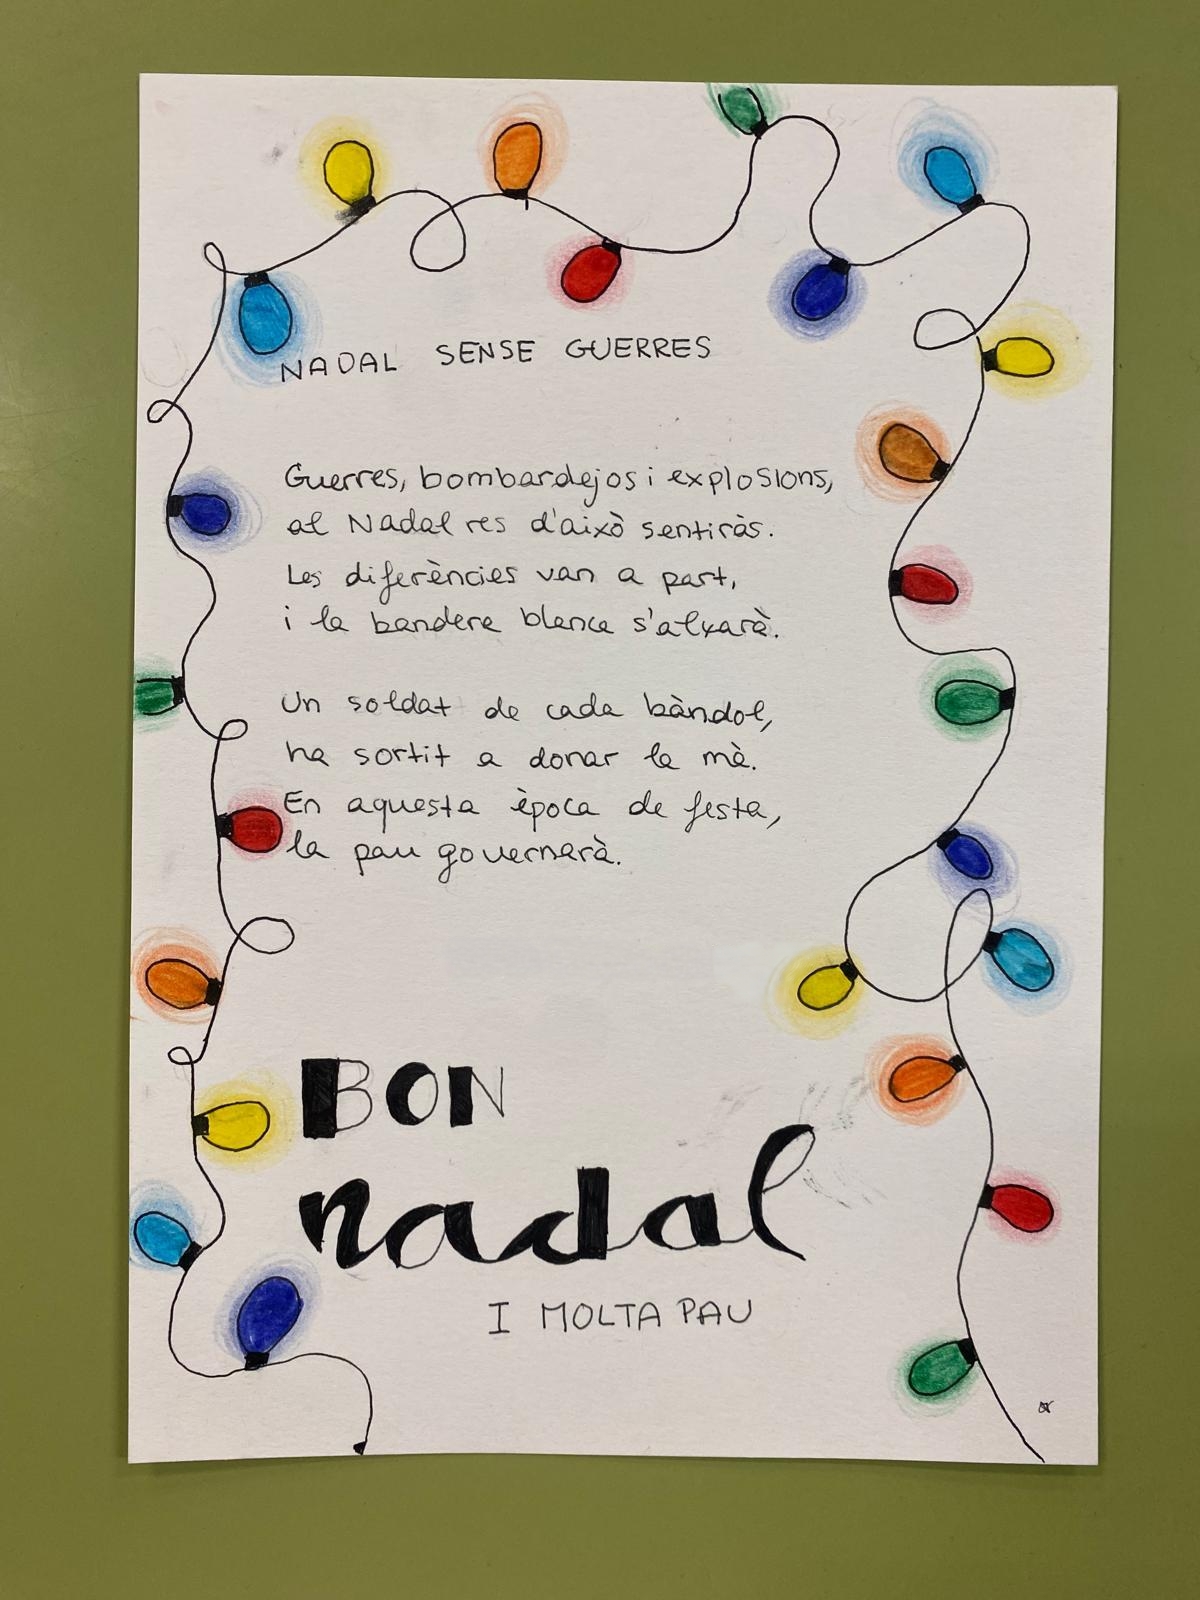 NADAL SENSE GUERRES
Guerres, bombardejos i explosions,
al Nadal res d'això sentiràs.
Les diferències van a part,
i la bandera blanca s'alxarà.
Un soldat de cada bàndol,
ha sortit a donar la mà.
En aquesta època de festa,
la pau governarà.
BON
nadal
I MOLTA PAU